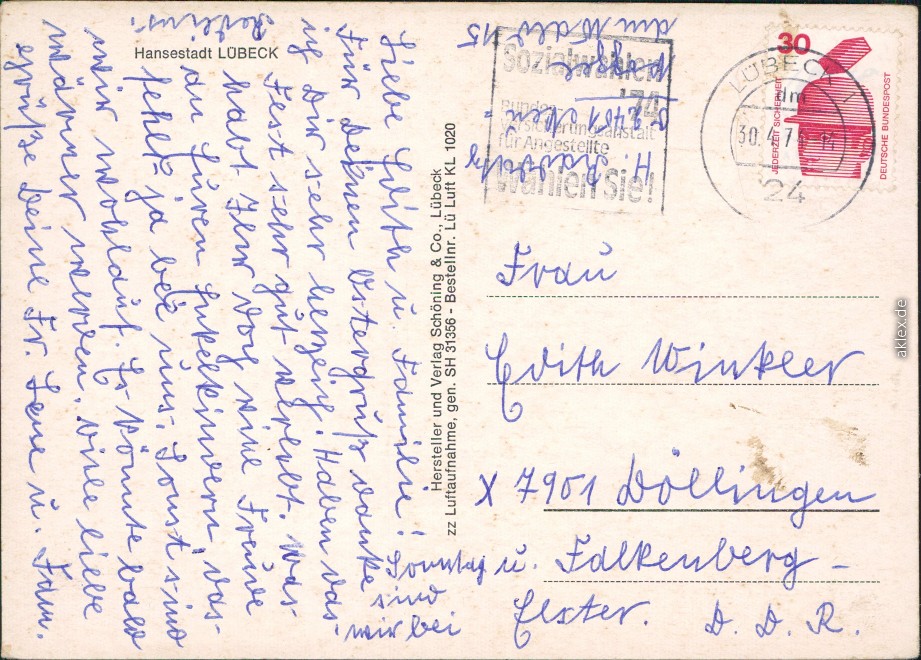 Hansestadt LÜBECK
Liebe Edith u. Familie!
Für Deinen Ostergruß danke
ich Dir sehr herzlich. Haben das
Fest sehr gut verlebt. Was
habt Ihr doch eine Freude
an Euren Enkelkindern das
fehlt ja bei uns. Sonst sind
wir wohlauf. Es könnte bald
wärmer werden. Viele liebe
grüße deine Fr. Lene u. Fam.
Sonntag sind
wir bei
Hersteller und Verlag Schöning & Co., Lübeck
zz Luftaufnahme, gen. SH 31356 - Bestellnr. Lü Luft KL 1020
Sozialwahlen
'74
Bundes-
versicherungsanstalt
für Angestellte
Wählen Sie!
LÜBECK 1
dm
30.4.7
24
30
JEDERZEIT SICHERHEIT
DEUTSCHE BUNDESPOST
Frau
Edith Winkler
X 7901 Döllingen
u. Falkenberg -
Elster. D. D. R.
aklex.de